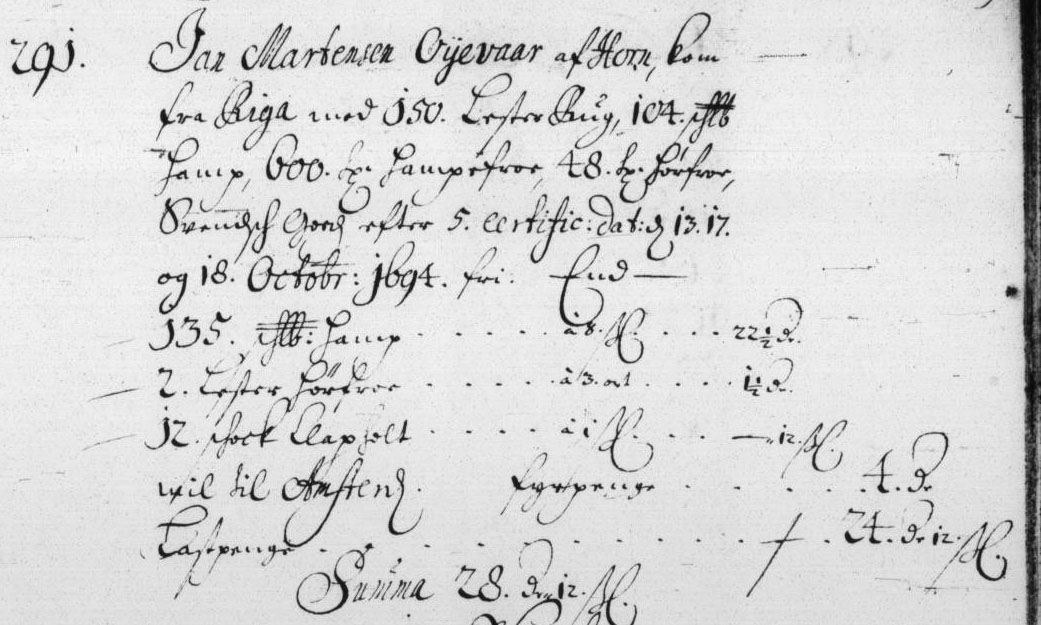 291. Jan Martensen Oÿevaar af Horn, kom
fra Riga med 150. Lester Rug, 104. schlb
Hamp, 600. tr. Hampefroe, 48. tr. Hørfroe,
Svendsch Goeds efter 5. certific: dat: d 13. 17.
og 18. Octobr: 1694. fri. End
135. schlb: Hamp . . . . à 8. sk . . . 22½ de.
2. Lester Hørfroe . . . . . à 3. ort . . . . 1½ de.
12. schock Clapholt . . . . à 1 sk. . . — 12. sk.
wil til Amsterd. fyrpenge . . . . . 4. de
Lastpenge . . . . . . . . . 24. de 12. sk.
Summa 28. de 12. sk.